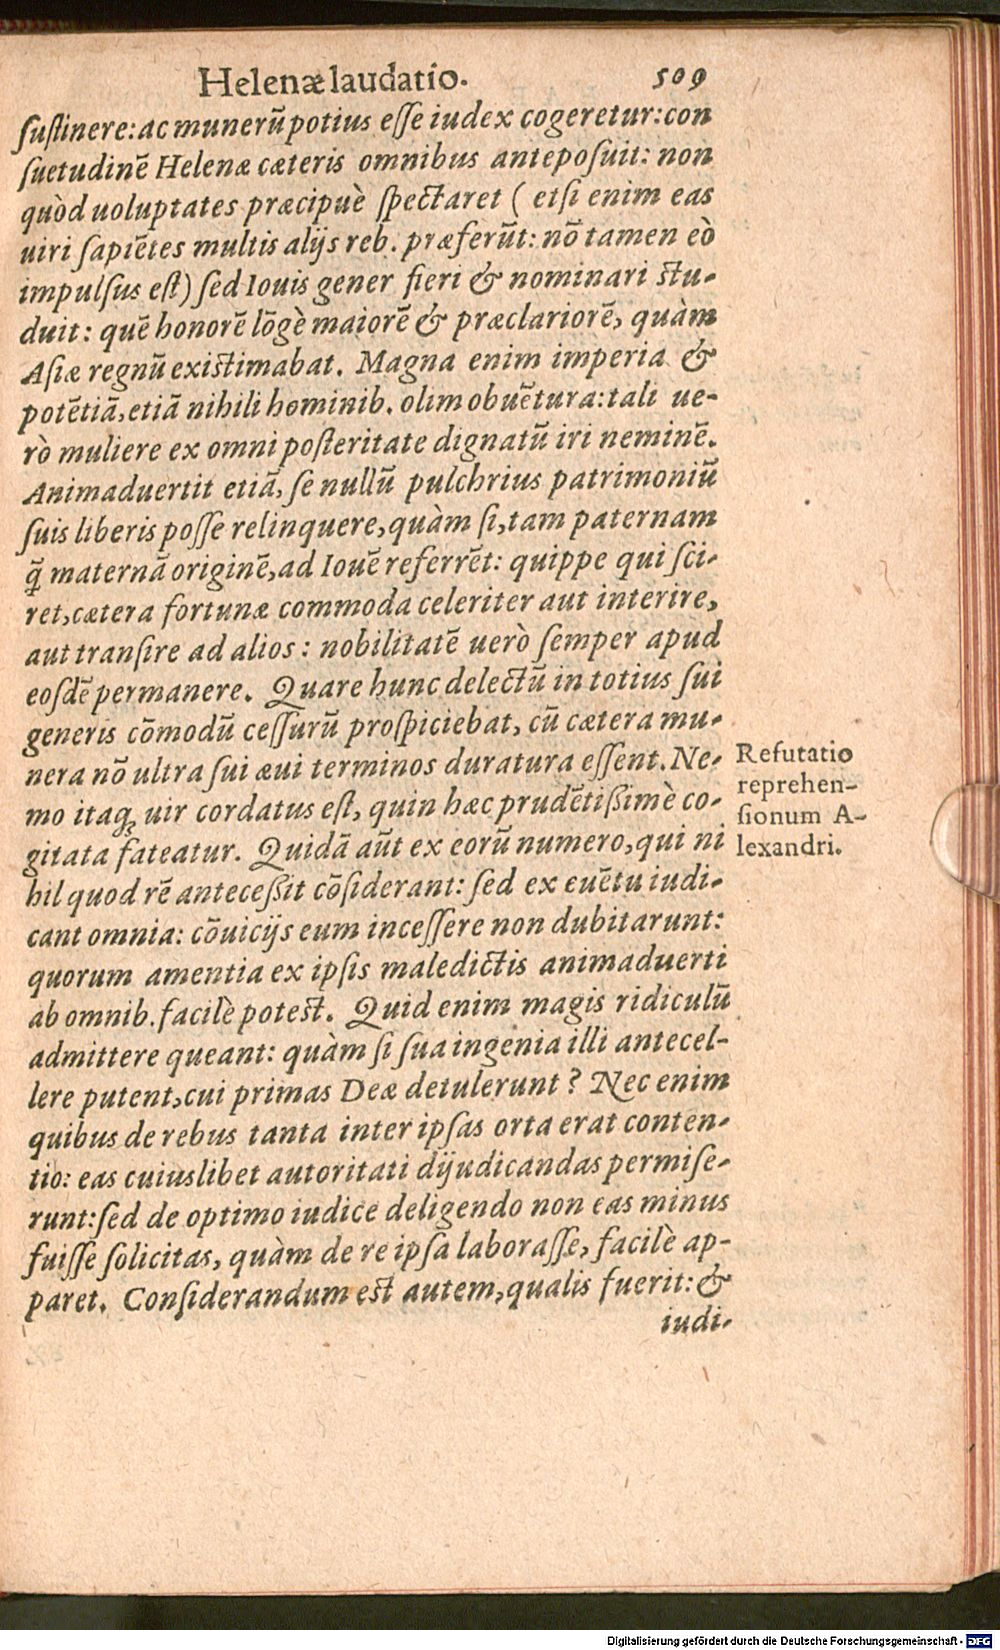 Helenæ laudatio. 509
sustinere: ac munerū potius esse iudex cogeretur: con
suetudinē Helenæ cæteris omnibus anteposuit: non
quòd uoluptates præcipuè spectaret ( etsi enim eas
uiri sapiētes multis alijs reb. præferūt: nō tamen eò
impulsus est) sed Iouis gener fieri & nominari stu-
duit: quē honorē lōgè maiorē & præclariorē, quàm
Asiæ regnū existimabat. Magna enim imperia &
potētiā, etiā nihili hominib. olim obuētura: tali ue-
rò muliere ex omni posteritate dignatū iri neminē.
Animaduertit etiā, se nullū pulchrius patrimoniū
suis liberis posse relinquere, quàm si, tam paternam
q̄ maternā originē, ad Iouē referrēt: quippe qui sci-
ret, cætera fortunæ commoda celeriter aut interire,
aut transire ad alios: nobilitatē uerò semper apud
eosdē permanere. Quare hunc delectū in totius sui
generis cōmodū cessurū prospiciebat, cū cætera mu-
nera nō ultra sui æui terminos duratura essent. Ne-
mo itaq; uir cordatus est, quin hæc prudētißimè co-
gitata fateatur. Quidā aūt ex eorū numero, qui ni
hil quod rē anteceßit cōsiderant: sed ex euētu iudi-
cant omnia: cōuicijs eum incessere non dubitarunt:
quorum amentia ex ipsis maledictis animaduerti
ab omnib. facilè potest. Quid enim magis ridiculū
admittere queant: quàm si sua ingenia illi antecel-
lere putent, cui primas Deæ detulerunt? Nec enim
quibus de rebus tanta inter ipsas orta erat conten-
tio: eas cuiuslibet autoritati dijudicandas permise-
runt: sed de optimo iudice deligendo non eas minus
fuisse solicitas, quàm de re ipsa laborasse, facilè ap-
paret. Considerandum est autem, qualis fuerit: &
iudi-
Refutatio
reprehen-
sionum A-
lexandri.
Digitalisierung gefördert durch die Deutsche Forschungsgemeinschaft - DFG